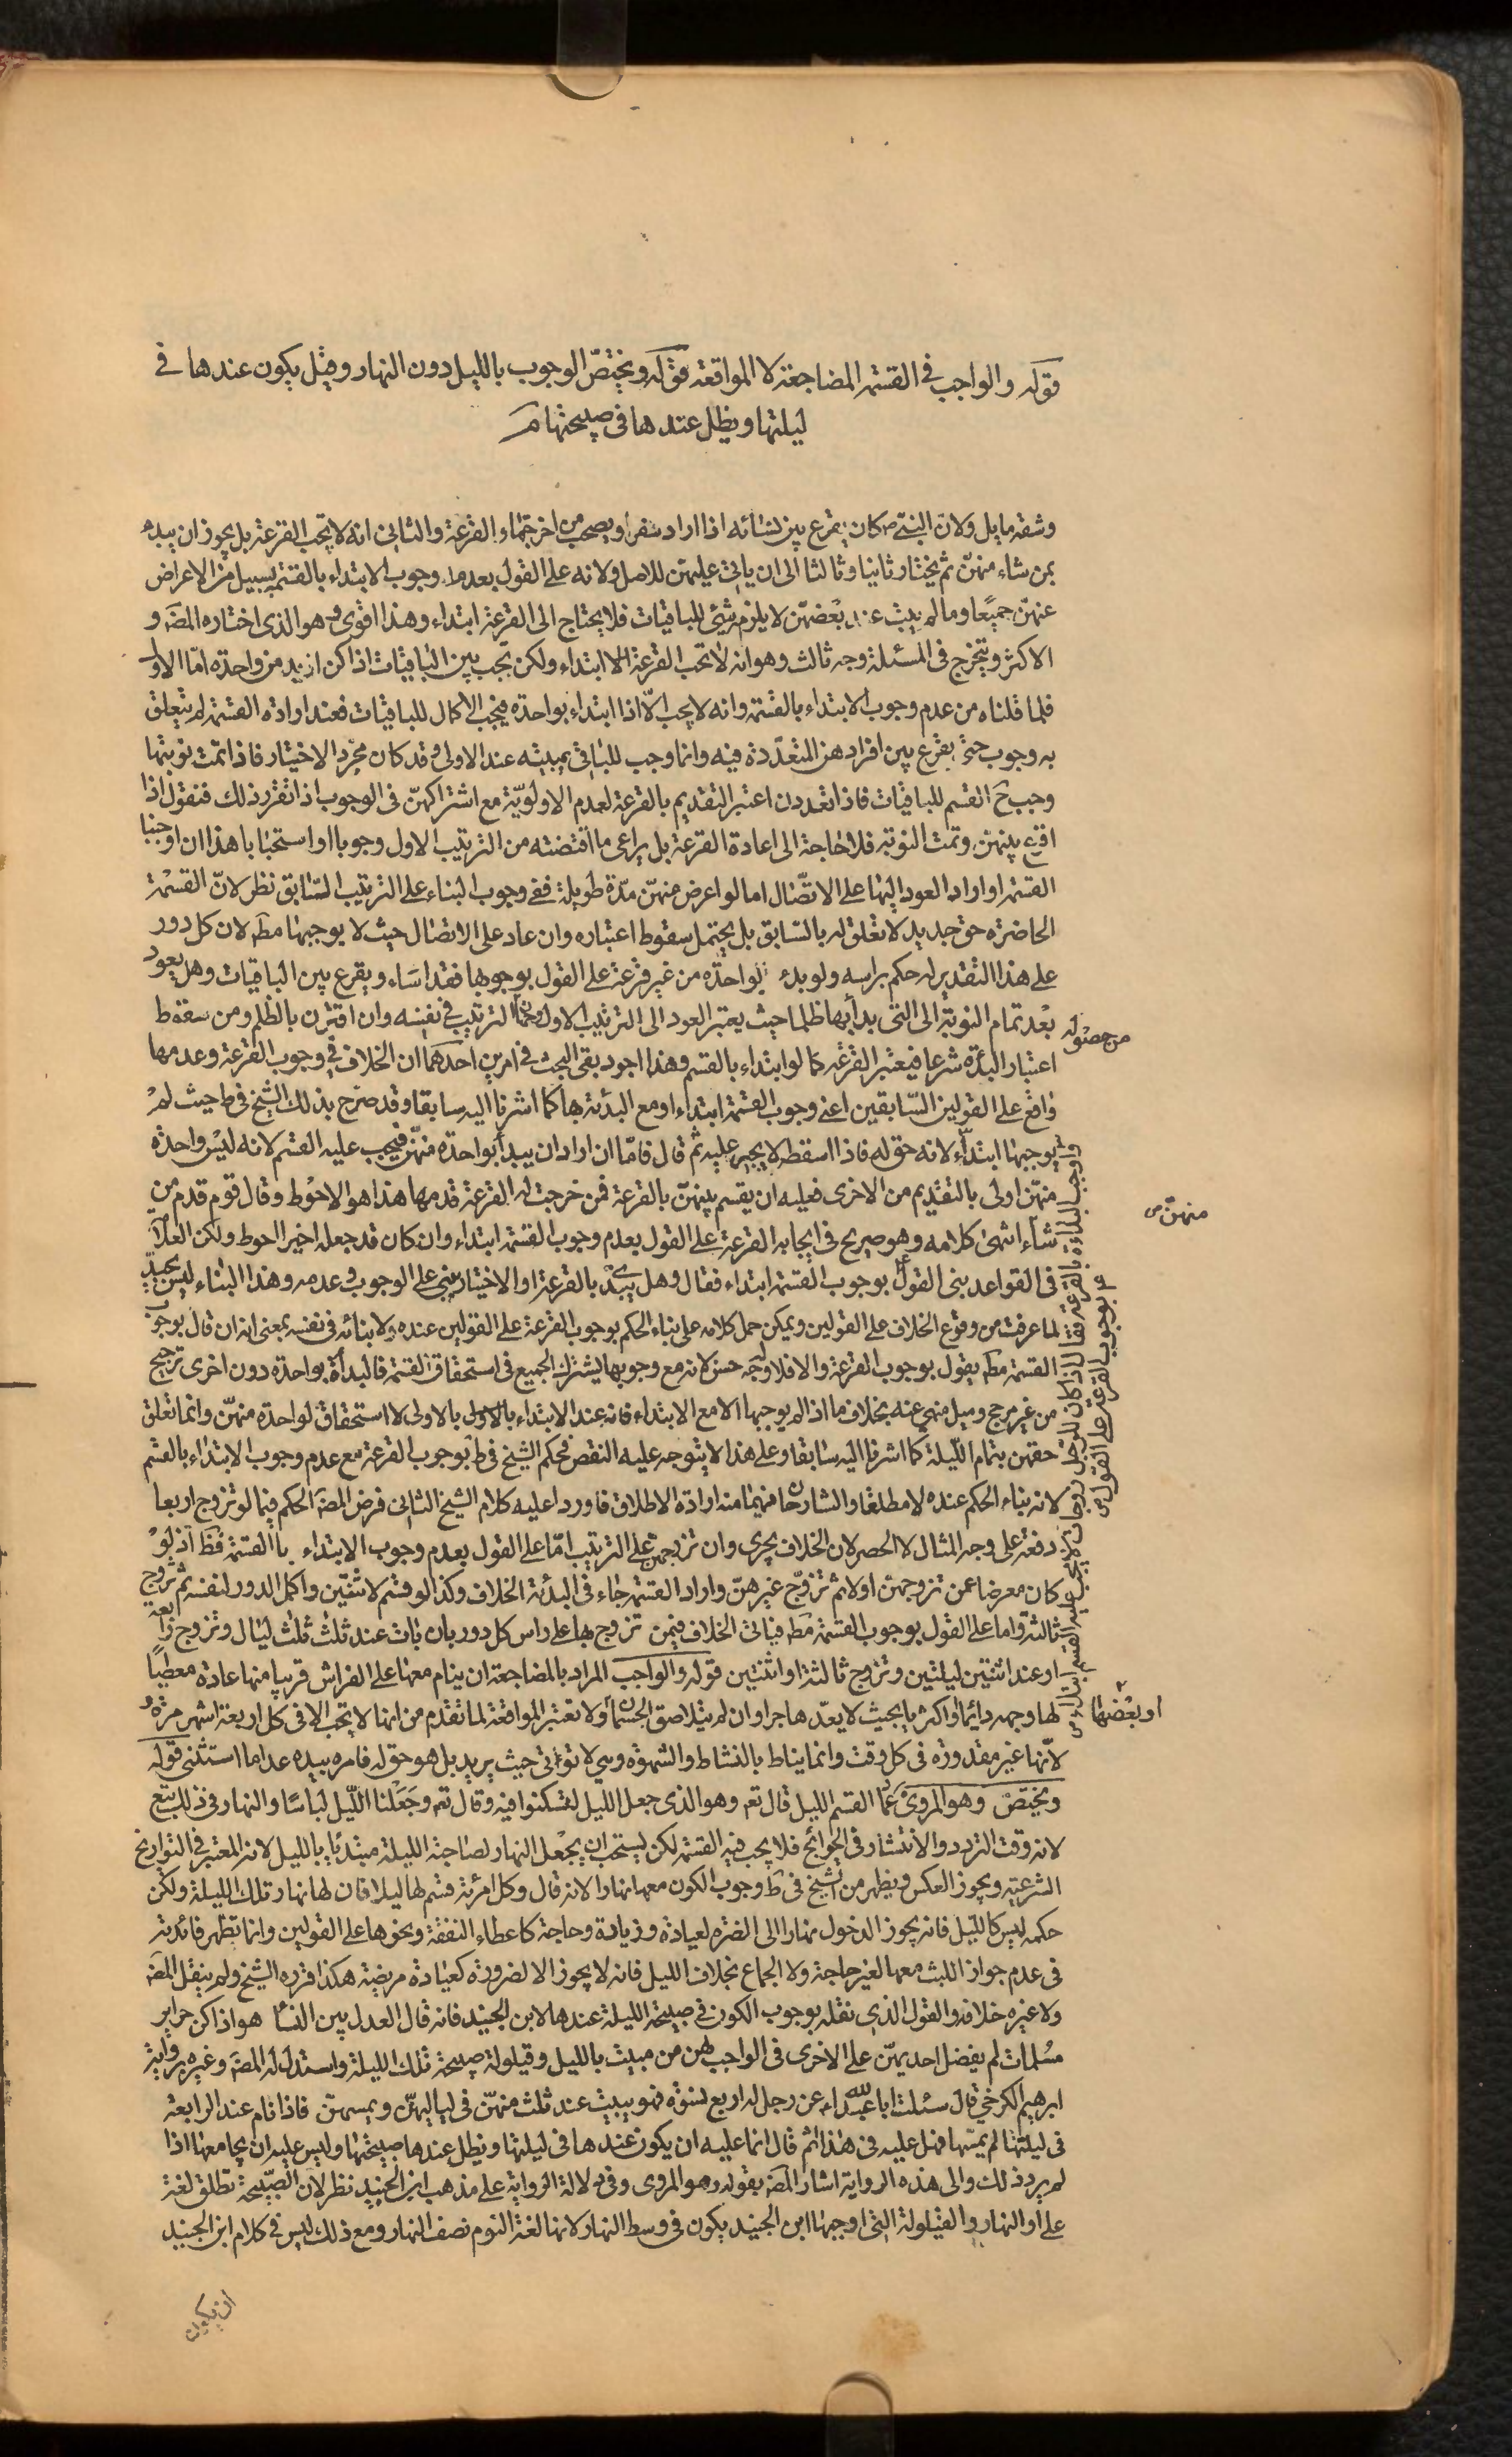 قوله والواجب فى القسمة المضاجعة لا المواقعة قوله ويختصّ الوجوب بالليل دون النهار وقيل يكون عندها فى
ليلتها ويظل عندها فى صبيحتها
وشقه مايل ولان النبى ص كان يقرع بين نسائه اذا اراد سفرا ويصحب من اخرجتها القرعة والثانى انه لا تجب القرعة بل يجوز ان يبدء
بمن شاء منهنّ ثم يختار ثانيا وثالثا الى ان ياتى عليهن للاصل ولانه على القول بعدم وجوب الابتداء بالقسمة بسبيل من الاعراض
عنهنّ جميعا وما لم يبت عند بعضهنّ لا يلزم شئ للباقيات فلا يحتاج الى القرعة ابتداء وهذا اقوى وهو الذى اختاره المصَ و
الاكثر ويتخرج فى المسئلة وجه ثالث وهو انه لا تجب القرعة الا ابتداء ولكن تجب بين الباقيات اذا كن ازيد من واحدة امّا الاول
فلما قلناه من عدم وجوب الابتداء بالقسمة وانه لا يجب الّا اذا ابتداء بواحدة فيجب الاكمال للباقيات فعند ارادة القسمة لم يتعلق
به وجوب حتى يقرع بين افراده المتعدّدة فيه وانما وجب للباقى بمبيته عند الاولى وقد كان مجرّد الاختيار فاذا تمت نوبتها
وجب ح القسم للباقيات فاذا تعددن اعتبر التقديم بالقرعة لعدم الاولويّة مع اشتراكهنّ فى الوجوب اذا تقرر ذلك فنقول اذا
اقرع بينهن وتمت النوبة فلا حاجة الى اعادة القرعة بل يراعى ما اقتضته من الترتيب الاول وجوبا او استحبابا هذا ان اوجبنا
القسمة او اراد العود اليها على الاتّصال اما لو اعرض منهنّ مدّة طويلة ففى وجوب البناء على الترتيب السّابق نظر لانّ القسمة
الحاضرة حق جديد لا تعلق له بالسّابق بل يحتمل سقوط اعتباره وان عاد على الاتصال حيث لا يوجبها مطَ لان كل دور
على هذا التقدير له حكم براسه ولو بدء بواحدة من غير قرعة على القول بوجوبها فقد اسَاء ويقرع بين الباقيات وهل يعود
بعد تمام النوبة الى التى بدأ بها ظلما حيث يعتبر العود الى الترتيب الاول وجهان الترتيب فى نفسه وان اقترن بالظلم ومن سقوط
من حصول
اعتبار البدأة شرعا فيعتبر القرعة كما لو ابتداء بالقسم وهذا اجود بقى البحث فى امرين احدهما ان الخلاف فى وجوب القرعة وعدمها
واقع على القولين السّابقين اعنى وجوب القسمة ابتداء او مع البدئة بها كما اشرنا اليه سابقا وقد صرّح بذلك الشيخ فى ط حيث لم
يوجبها ابتداء لانه حق له فاذا اسقطه لا يجبر عليه ثم قال فامّا ان اراد ان يبدأ بواحدة منهنّ فيجب عليه القسم لانه ليس واحدة
منهنّ اولى بالتقديم من الاخرى فعليه ان يقسم بينهنّ بالقرعة فمن خرجت له القرعة قدمها هذا هو الاحوط وقال قوم قدم من
منهنّ
شاء انتهى كلامه وهو صريح فى ايجابه القرعة على القول بعدم وجوب القسمة ابتداء وان كان قد جعله اخيرا احوط ولكن العلّامة
فى القواعد بنى القول بوجوب القسمة ابتداء فقال وهل يبدء بالقرعة او الاختيار يبنى على الوجوب وعدمه وهذا البناء ليس بجيد
لما عرفت من وقوع الخلاف على القولين ويمكن حمل كلامه على بناء الحكم بوجوب القرعة على القولين عنده ولا بنائه فى نفسه بمعنى انه ان قال بوجوب
القسمة مطَ يقول بوجوب القرعة والا فلا وجه حسن لانه مع وجوبها يشترك الجميع فى استحقاق القسمة فالبدأة بواحدة دون اخرى ترجيح
من غير مرجح وميل منهى عنه بخلاف ما اذا لم يوجبها الا مع الابتداء فانه عند الابتداء بالاولى لا استحقاق لواحدة منهنّ وانما تعلق
حقهن بتمام الليلة كما اشرنا اليه سابقا وعلى هذا لا يتوجه عليه النقص بحكم الشيخ فى ط بوجوب القرعة مع عدم وجوب الابتداء بالقسم
لانه بناء الحكم عنده لا مطلقا والشارحان فهما منه ارادة الاطلاق فاوردا عليه كلام الشيخ الثانى فرض المصَ الحكم فيما لو تزوج اربعا
دفعة على وجه المثال لا الحصر لان الخلاف يجرى وان تزوجهن على الترتيب امّا على القول بعدم وجوب الابتداء بالقسمة فظَ اذ لو
كان معرضا عمن تزوجهنّ اولا ثم تزوّج غيرهنّ واراد القسمة جاء فى البدئة الخلاف وكذا لو قسم لاثنتين واكمل الدور لنفسه ثم تزوج
ثالثة واما على القول بوجوب القسمة مطَ فياتى الخلاف فيمن تزوج بها على راس كل دور بان بات عند ثلث ثلث ليال وتزوج رابعة
او عند اثنتين ليلتين وتزوج ثالثة او اثنتين قوله والواجب المراد بالمضاجعة ان ينام معها على الفراش قريبا منها عادة معطيا
لها وجهه دائما او اكثريا بحيث لا يعدّ هاجرا وان لم يتلاصق الجسمان ولا تعتبر المواقعة لما تقدم من انها لا تجب الا فى كل اربعة اشهر مرة و
او بعضها
لانّها غير مقدورة فى كل وقت وانما يناط بالنشاط والشهوة وهى لا تؤاتى حيث يريد بل هو حق له فامره بيده عدا ما استثنى قوله
ويختصّ وهو المروى عماد القسم الليل قال تعَ وهو الذى جعل الليل لتسكنوا فيه وقال تعَ وجَعَلْنا الليل لباسًا والنهار فى ذلك تبع
لانه وقت التردد والانتشار فى الحوائج فلا يجب فيه القسمة لكن يستحب ان يجعل النهار لصاحبة الليلة مبتدئا بالليل لانه المعتبر فى التواريخ
الشرعية ويجوز العكس ويظهر من الشيخ فى ط وجوب الكون معها نهارا لانه قال وكل امرئة قسم لها ليلا فان لها نهار تلك الليلة ولكن
حكمه ليس كالليل فانه يجوز الدخول نهارا الى الضرة لعيادة وزيادة وحاجة كاعطاء النفقة ونحوها على القولين وانما تظهر فائدته
فى عدم جواز اللبث معها لغير حاجة ولا الجماع بخلاف الليل فانه لا يجوز الا لضرورة كعيادة مريضة هكذا قرره الشيخ ولم ينقل المصَ
ولا غيره خلافه والقول الذى نقله بوجوب الكون فى صبيحة الليلة عندها لابن الجنيد فانه قال العدل بين النسا هو اذا كن حراير
مسلمات لم يفضل احديهنّ على الاخرى فى الواجب لهن من مبيت بالليل وقيلولة صبيحة تلك الليلة واستدل له المصَ وغيره برواية
ابرهيم الكرخى قال سئلت ابا عبد الله ع عن رجل له اربع نسوة فهو يبيت عند ثلث منهنّ فى لياليهنّ ويمسهنّ فاذا نام عند الرابعة
فى ليلتها لم يمسّها فهل عليه فى هذا اثم قال انما عليه ان يكون عندها فى ليلتها ويظل عندها صبيحتها وليس عليه ان يجامعها اذا
لم يرد ذلك والى هذه الرواية اشار المصَ بقوله وهو المروى وفى دلالة الرواية على مذهب ابن الجنيد نظر لان الصّبيحة تطلق لغة
على اول النهار والقيلولة التى اوجبها ابن الجنيد يكون فى وسط النهار لانها لغة النوم نصف النهار ومع ذلك ليس فى كلام ابن الجنيد
ان يكون